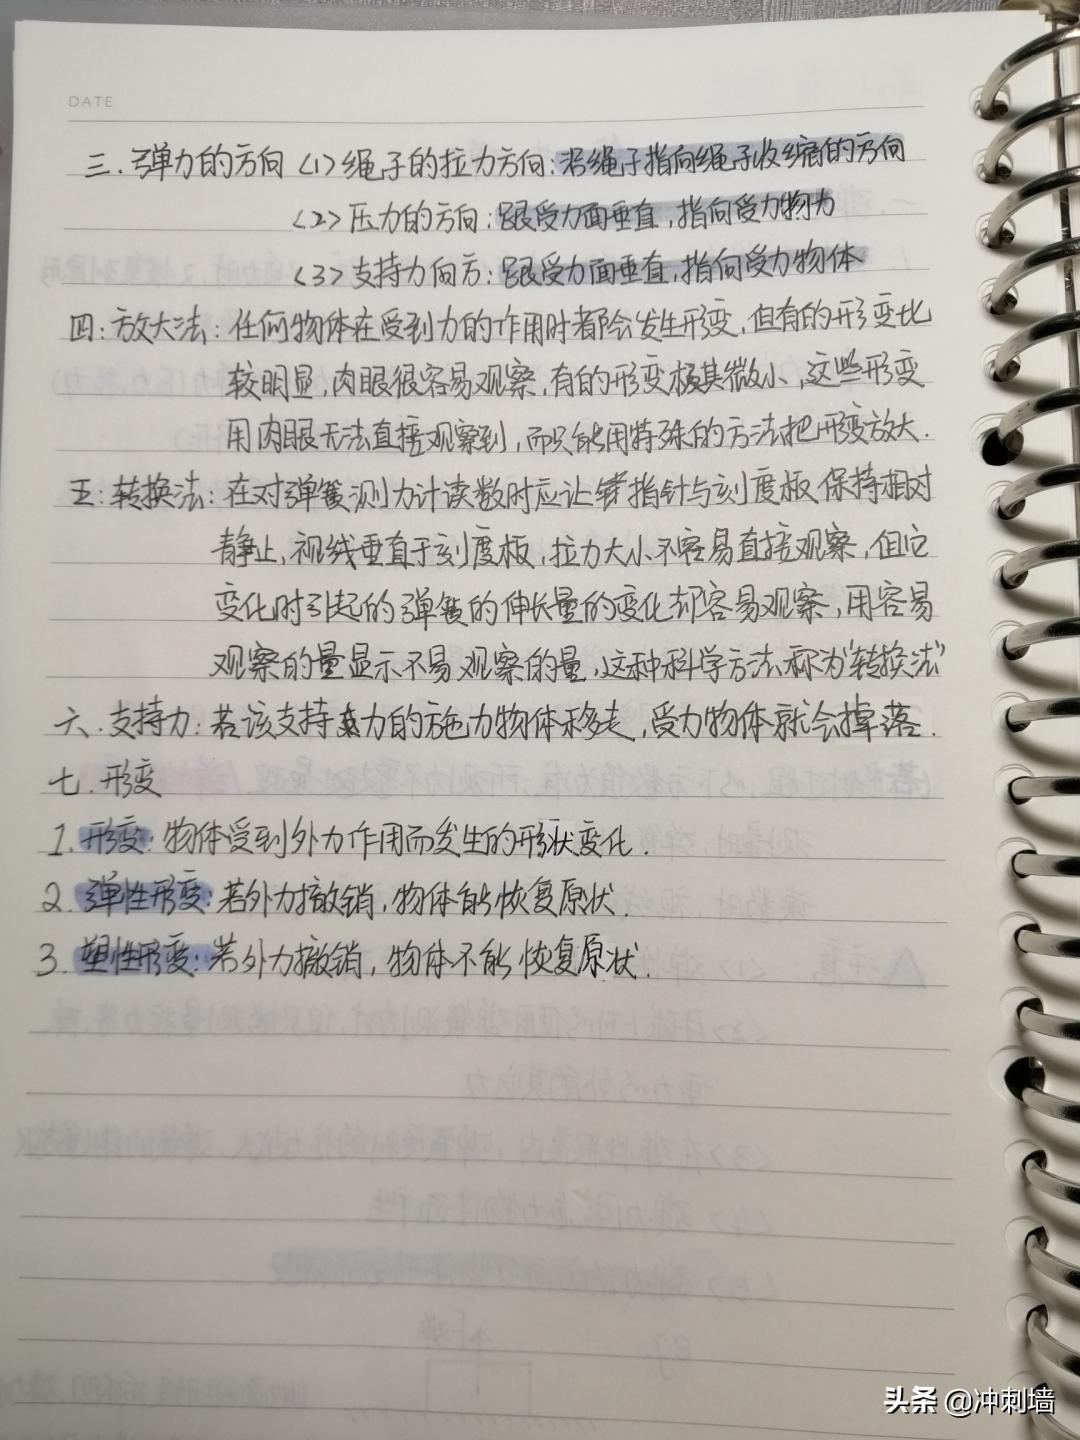 DATE
三.弹力的方向<1>绳子的拉力方向:沿绳子指向绳子收缩的方向
<2>压力的方向:跟受力面垂直,指向受力物为
<3>支持力向方:跟受力面垂直,指向受力物体
四:放大法:任何物体在受到力的作用时都会发生形变,但有的形变比
较明显,肉眼很容易观察,有的形变极其微小,这些形变
用肉眼无法直接观察到,而只能用特殊的方法把形变放大.
五:转换法:在对弹簧测力计读数时应让指针与刻度板保持相对
静止,视线垂直于刻度板,拉力大小不容易直接观察,但它
变化时引起的弹簧的伸长量的变化却容易观察,用容易
观察的量显示不易观察的量,这种科学方法称为“转换法”
六.支持力:若该支持力的施力物体移走,受力物体就会掉落.
七.形变
1.形变:物体受到外力作用而发生的形状变化.
2.弹性形变:若外力撤销,物体能恢复原状.
3.塑性形变:若外力撤销,物体不能恢复原状.
头条@冲刺墙